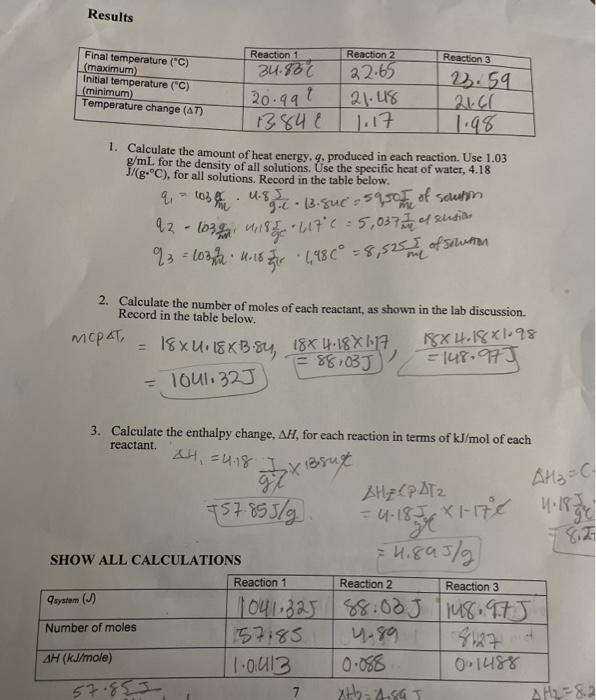 Results
Reaction 1 Reaction 2 Reaction 3
Final temperature (°C) (maximum) 34.83°C 22.65 23.59
Initial temperature (°C) (minimum) 20.99°C 21.48 21.61
Temperature change (ΔT) 13.84°C 1.17 1.98
1. Calculate the amount of heat energy, q, produced in each reaction. Use 1.03
g/mL for the density of all solutions. Use the specific heat of water, 4.18
J/(g·°C), for all solutions. Record in the table below.
q1 = 103 g/mL · 4.8 J/g·c · 13.84c = 59,50 J/mL of solution
q2 - 103 g/mL · 4.18 J/g·c · 1.17°C = 5,037 J/mL of solution
q3 = 103 g/mL · 4.18 J/g·c · 1,98C° = 8,525 J/mL of solution
2. Calculate the number of moles of each reactant, as shown in the lab discussion.
Record in the table below.
mcpΔT, = 18×4.18×13.84, 18×4.18×1.17, 18×4.18×1.98
= 88.03J = 148.97J
= 1041.32J
3. Calculate the enthalpy change, ΔH, for each reaction in terms of kJ/mol of each
reactant.
ΔH1 = 4.18 J/g°c × 13.84°c
= 57.85 J/g
ΔH2 = CpΔT2
= 4.18 J/g°c × 1.17°c
= 4.89 J/g
ΔH3 = C
4.18 J/g°c
= 8.2
SHOW ALL CALCULATIONS
Reaction 1 Reaction 2 Reaction 3
qsystem (J) 1041.32J 88.03J 148.97J
Number of moles 57.85 4.89 8.27
ΔH (kJ/mole) 1.0413 0.088 0.1488
57.85J
7
ΔH2=4.89J
ΔH2=8.2